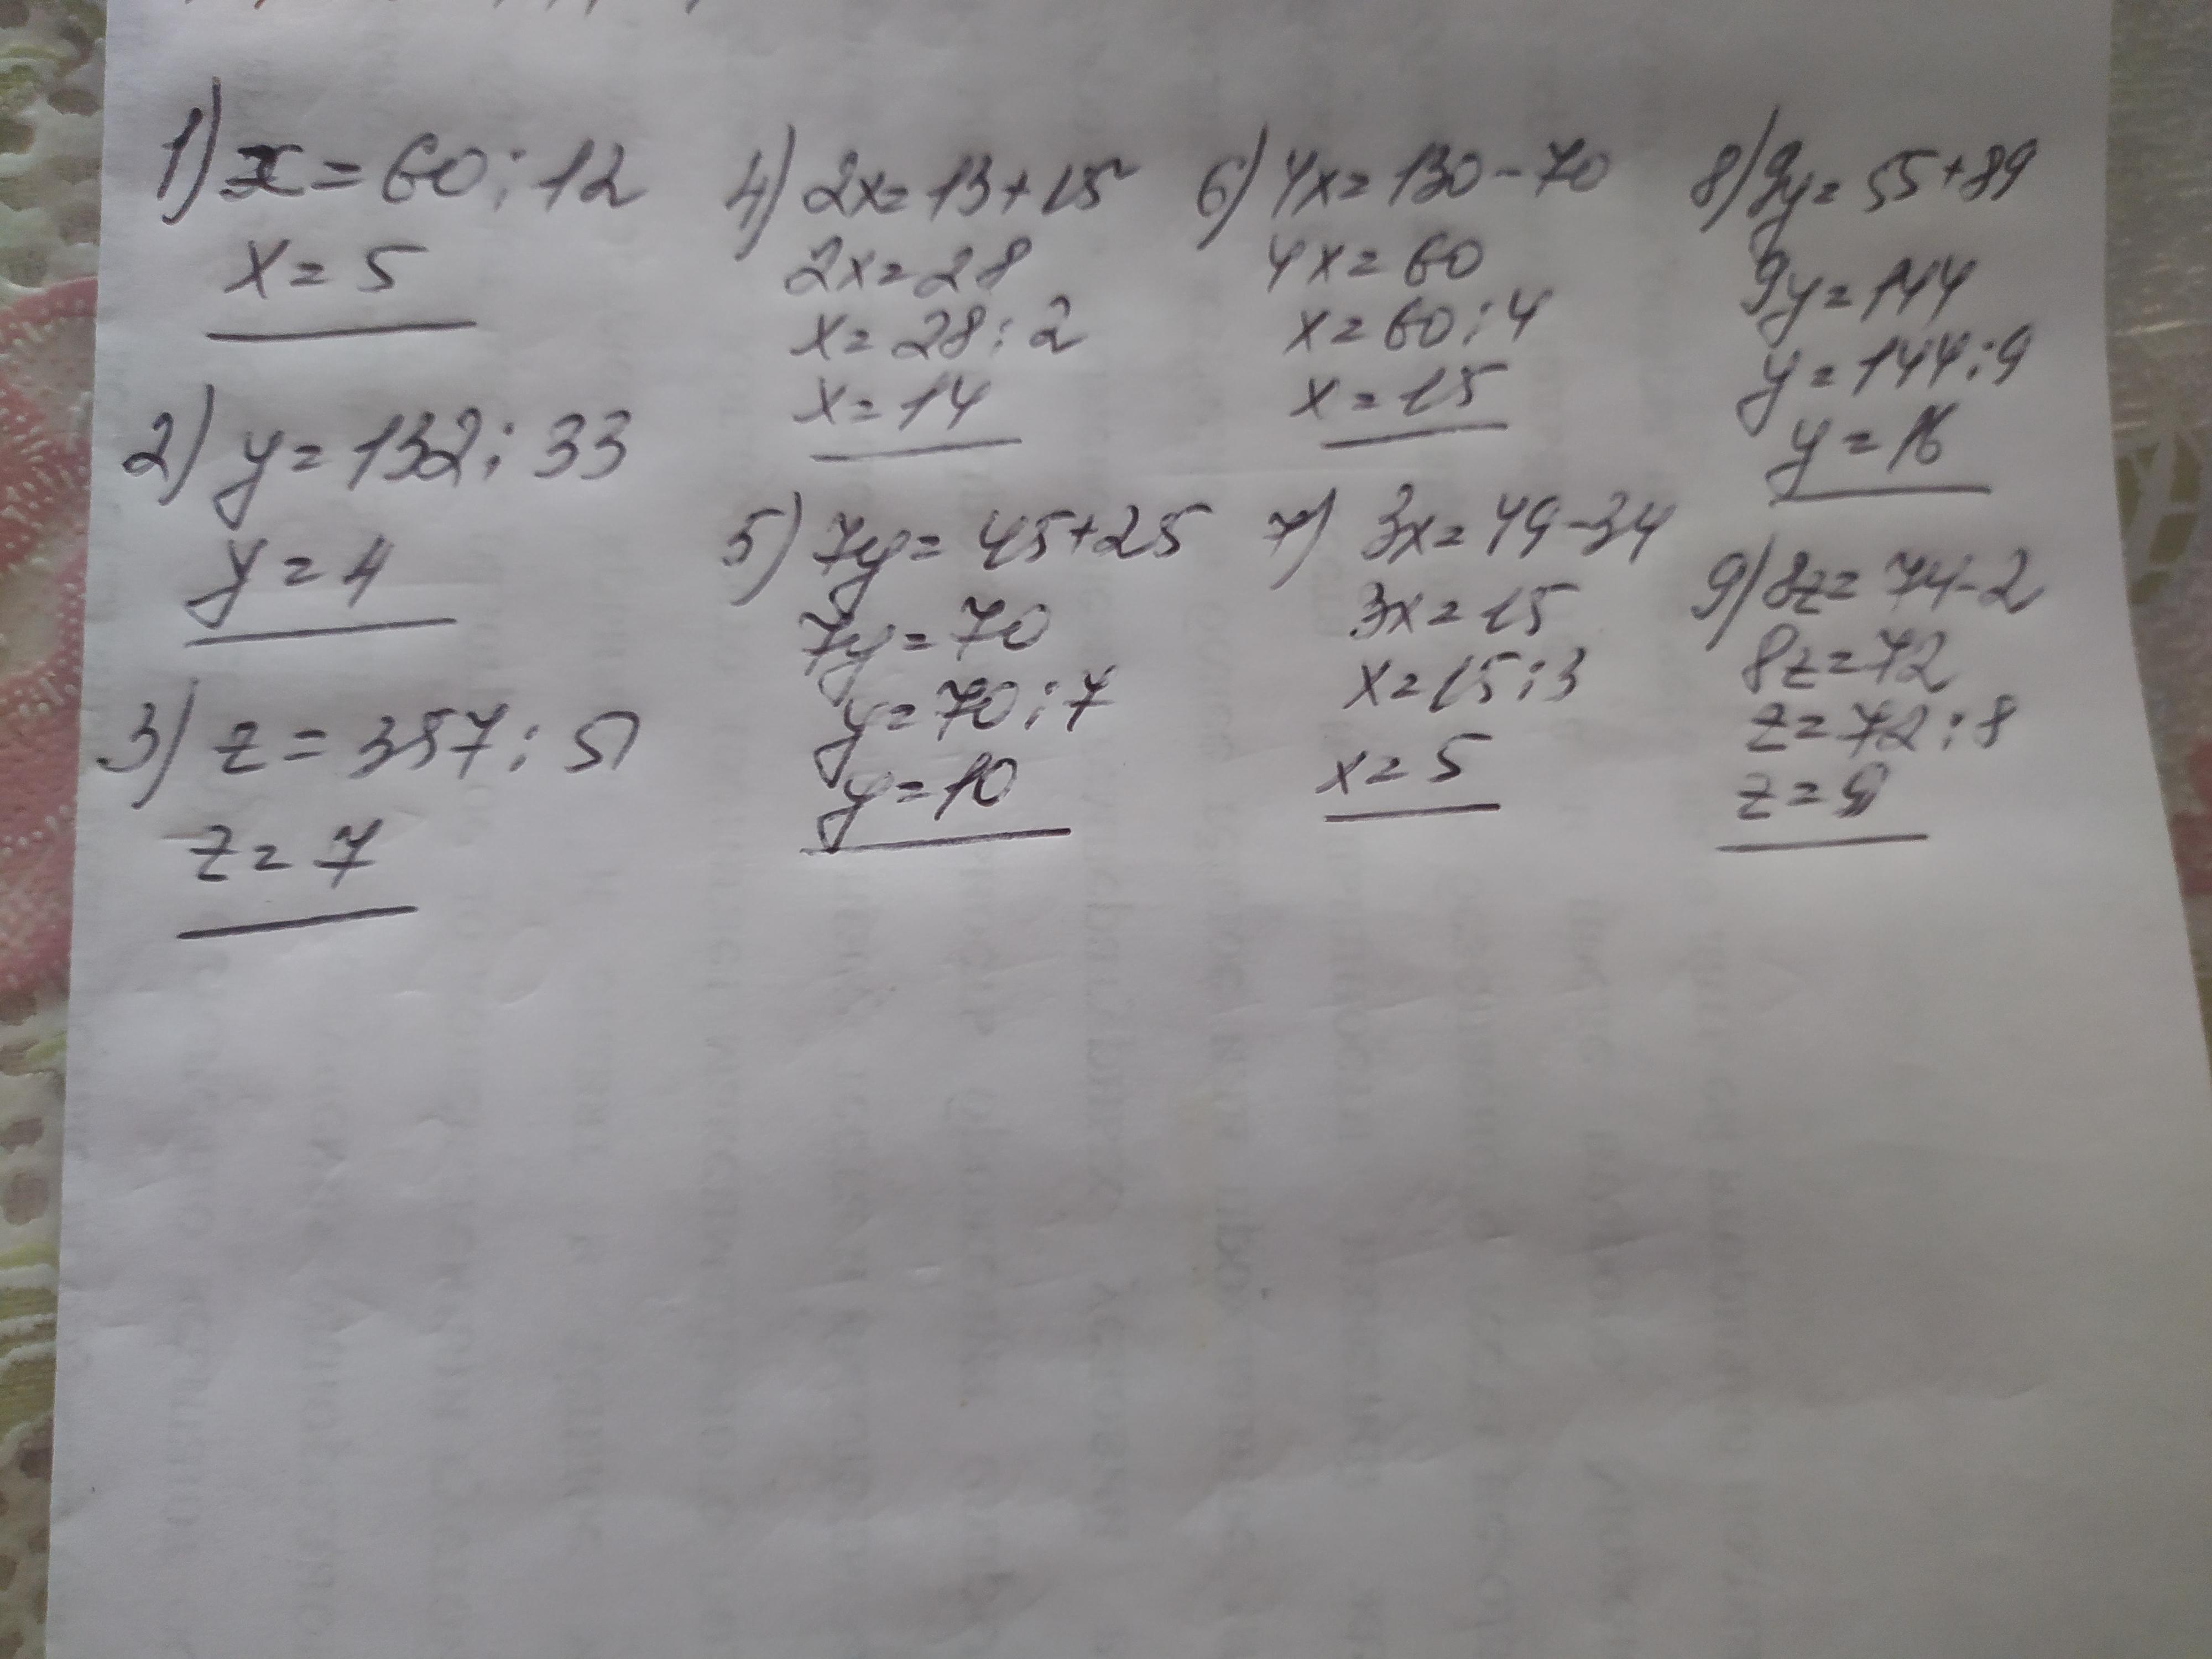 1) x = 60 : 12
x = 5
2) y = 132 : 33
y = 4
3) z = 357 : 51
z = 7
4) 2x = 13 + 15
2x = 28
x = 28 : 2
x = 14
5) 7y = 45 + 25
7y = 70
y = 70 : 7
y = 10
6) 4x = 130 - 70
4x = 60
x = 60 : 4
x = 15
7) 3x = 49 - 34
3x = 15
x = 15 : 3
x = 5
8) 9y = 55 + 89
9y = 144
y = 144 : 9
y = 16
9) 8z = 74 - 2
8z = 72
z = 72 : 8
z = 9